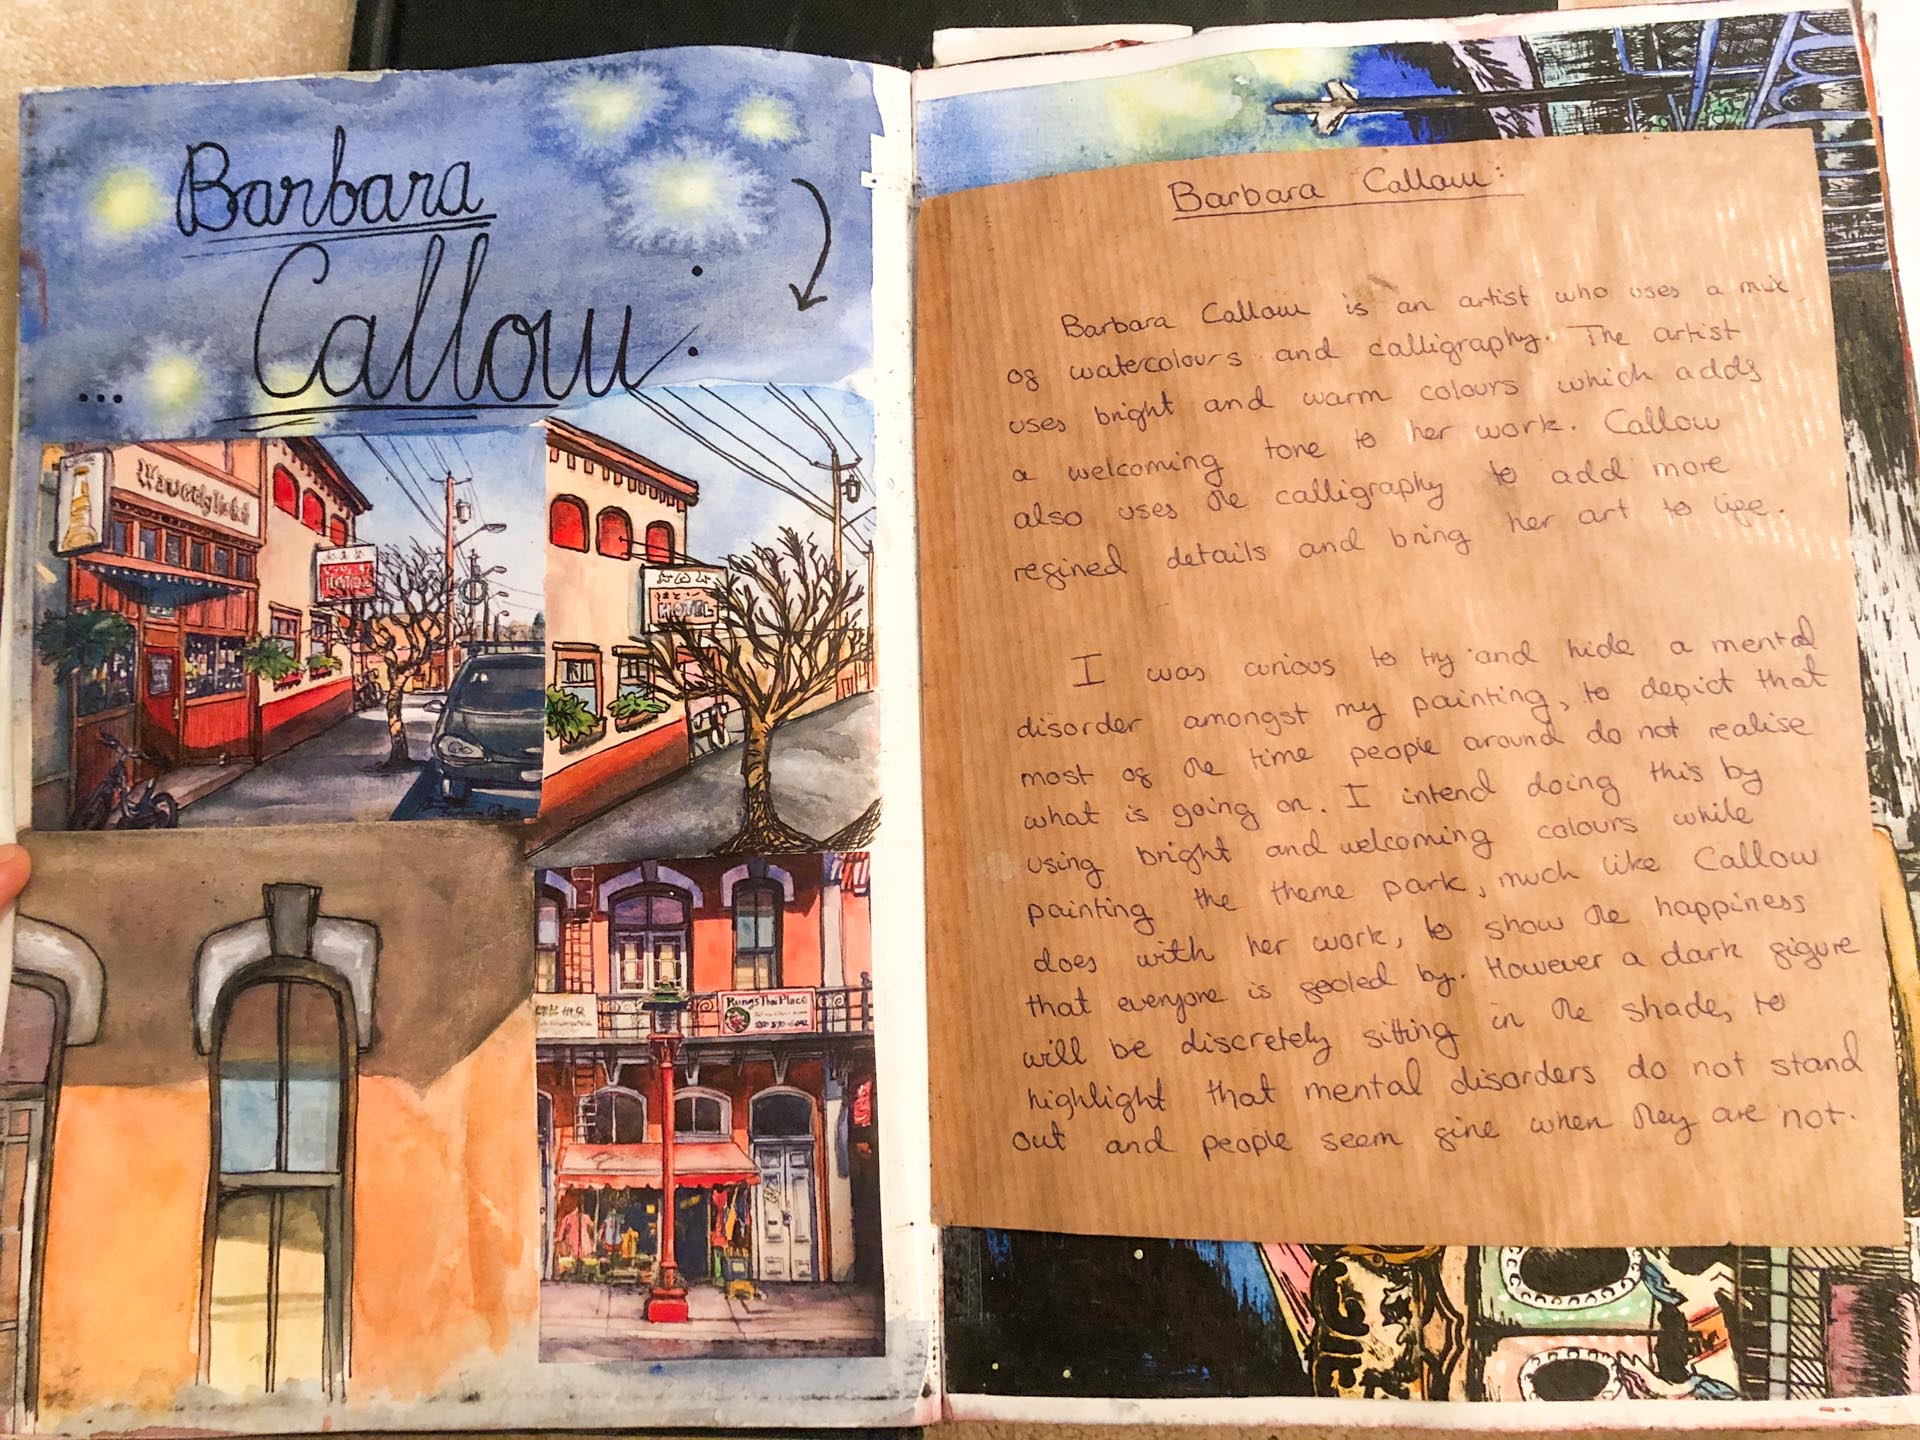 Barbara
Callow:
...
Waverly Hotel
HOTEL
HOTEL
Rungs Thai Place
Barbara Callow:
Barbara Callow is an artist who uses a mix
of watercolours and calligraphy. The artist
uses bright and warm colours which adds
a welcoming tone to her work. Callow
also uses the calligraphy to add more
refined details and bring her art to life.
I was curious to try and hide a mental
disorder amongst my painting, to depict that
most of the time people around do not realise
what is going on. I intend doing this by
using bright and welcoming colours while
painting the theme park, much like Callow
does with her work, to show the happiness
that everyone is fooled by. However a dark figure
will be discretely sitting in the shade, to
highlight that mental disorders do not stand
out and people seem fine when they are not.